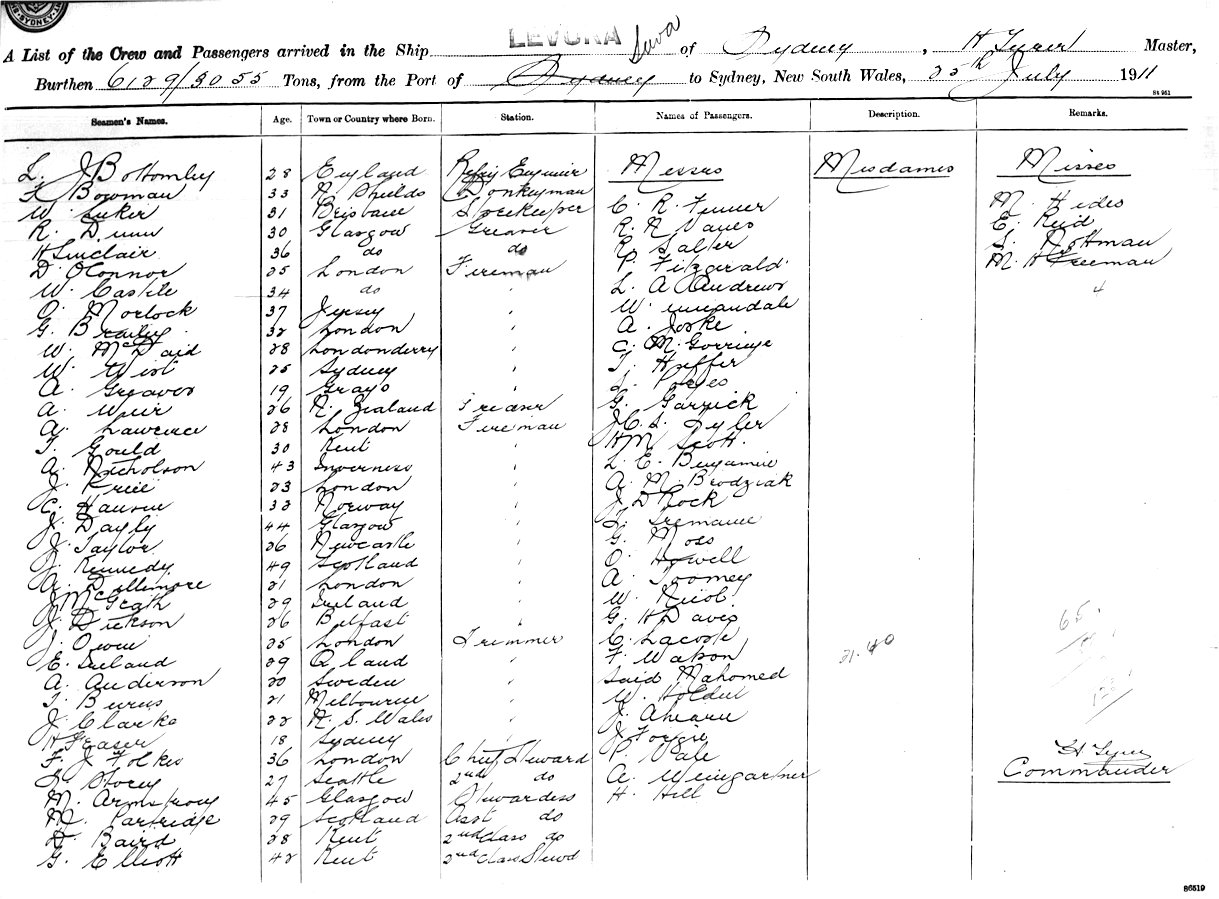 SYDNEY
LEVUKA Suva
A List of the Crew and Passengers arrived in the Ship of Sydney, H Tyrer Master,
Burthen 6129/3055 Tons, from the Port of Sydney to Sydney, New South Wales, 25th July 1911
84 961
Seamen's Names. Age. Town or Country where Born. Station. Names of Passengers. Description. Remarks.
L. J Bottomley 28 England Refrig Engineer Messrs Mesdames Misses
F Bowman 33 N Shields Donkeyman M. Hides
W. 31 Brisbane Storekeeper C. R. Turner
R. Dunn 30 Glasgow Greaser R. N E. Reid
H Sinclair 36 do do R. Salter S. Hottman
D. O'Connor 25 London Fireman P. Fitzgerald M. H Freeman
W. Castle 34 do " L. A Andrews 4
O. Morlock 37 Jersey " W.
G. Brailey 32 London " A. Joske
W. McDaid 28 Londonderry " C. M. Gorringe
W. West 25 Sydney " T. Heffer
A. Greaves 19 Grays "
A. Weir 26 N. Zealand Greaser G. Garrick
A. Lawrence 28 London Fireman J. C. S. Tyler
T. Gould 30 Kent " H M Scott
A. Nicholson 43 Inverness " L. E. Benjamin
J. 23 London " A. M. Brodziak
C. Hansen 32 Norway " J. D Rock
J. Dayly 44 Glasgow "
J. Taylor 26 Newcastle " G. Moss
J. Kennedy 49 Scotland " O. Howell
A. Dellimore 21 London " A. Toomey
J. McGrath 29 Ireland " W. Nicol
J. Dickson 26 Belfast " G. H Davis 65.
J. Owen 25 London Trimmer C. Lacoste
E. Ireland 29 Q land " F Watson 21.40
A. Anderson 20 Sweden " Said Mahomed
T. Burns 21 Melbourne " W. Holder
J. Clarke 22 N. S. Wales " J. Ahearn
H Fraser 18 Sydney " J Forgie
F. J Folkes 36 London Chief Steward P. Vale H Tyrer
Storey 27 Seattle 2nd do A. Weingartner Commander
M. Armstrong 45 Glasgow Stewardess H. Hill
M. Partridge 29 Scotland Asst do
H. Baird 28 Kent 2nd Class do
G. Elliott 42 Kent 2nd Class Stewd
86519